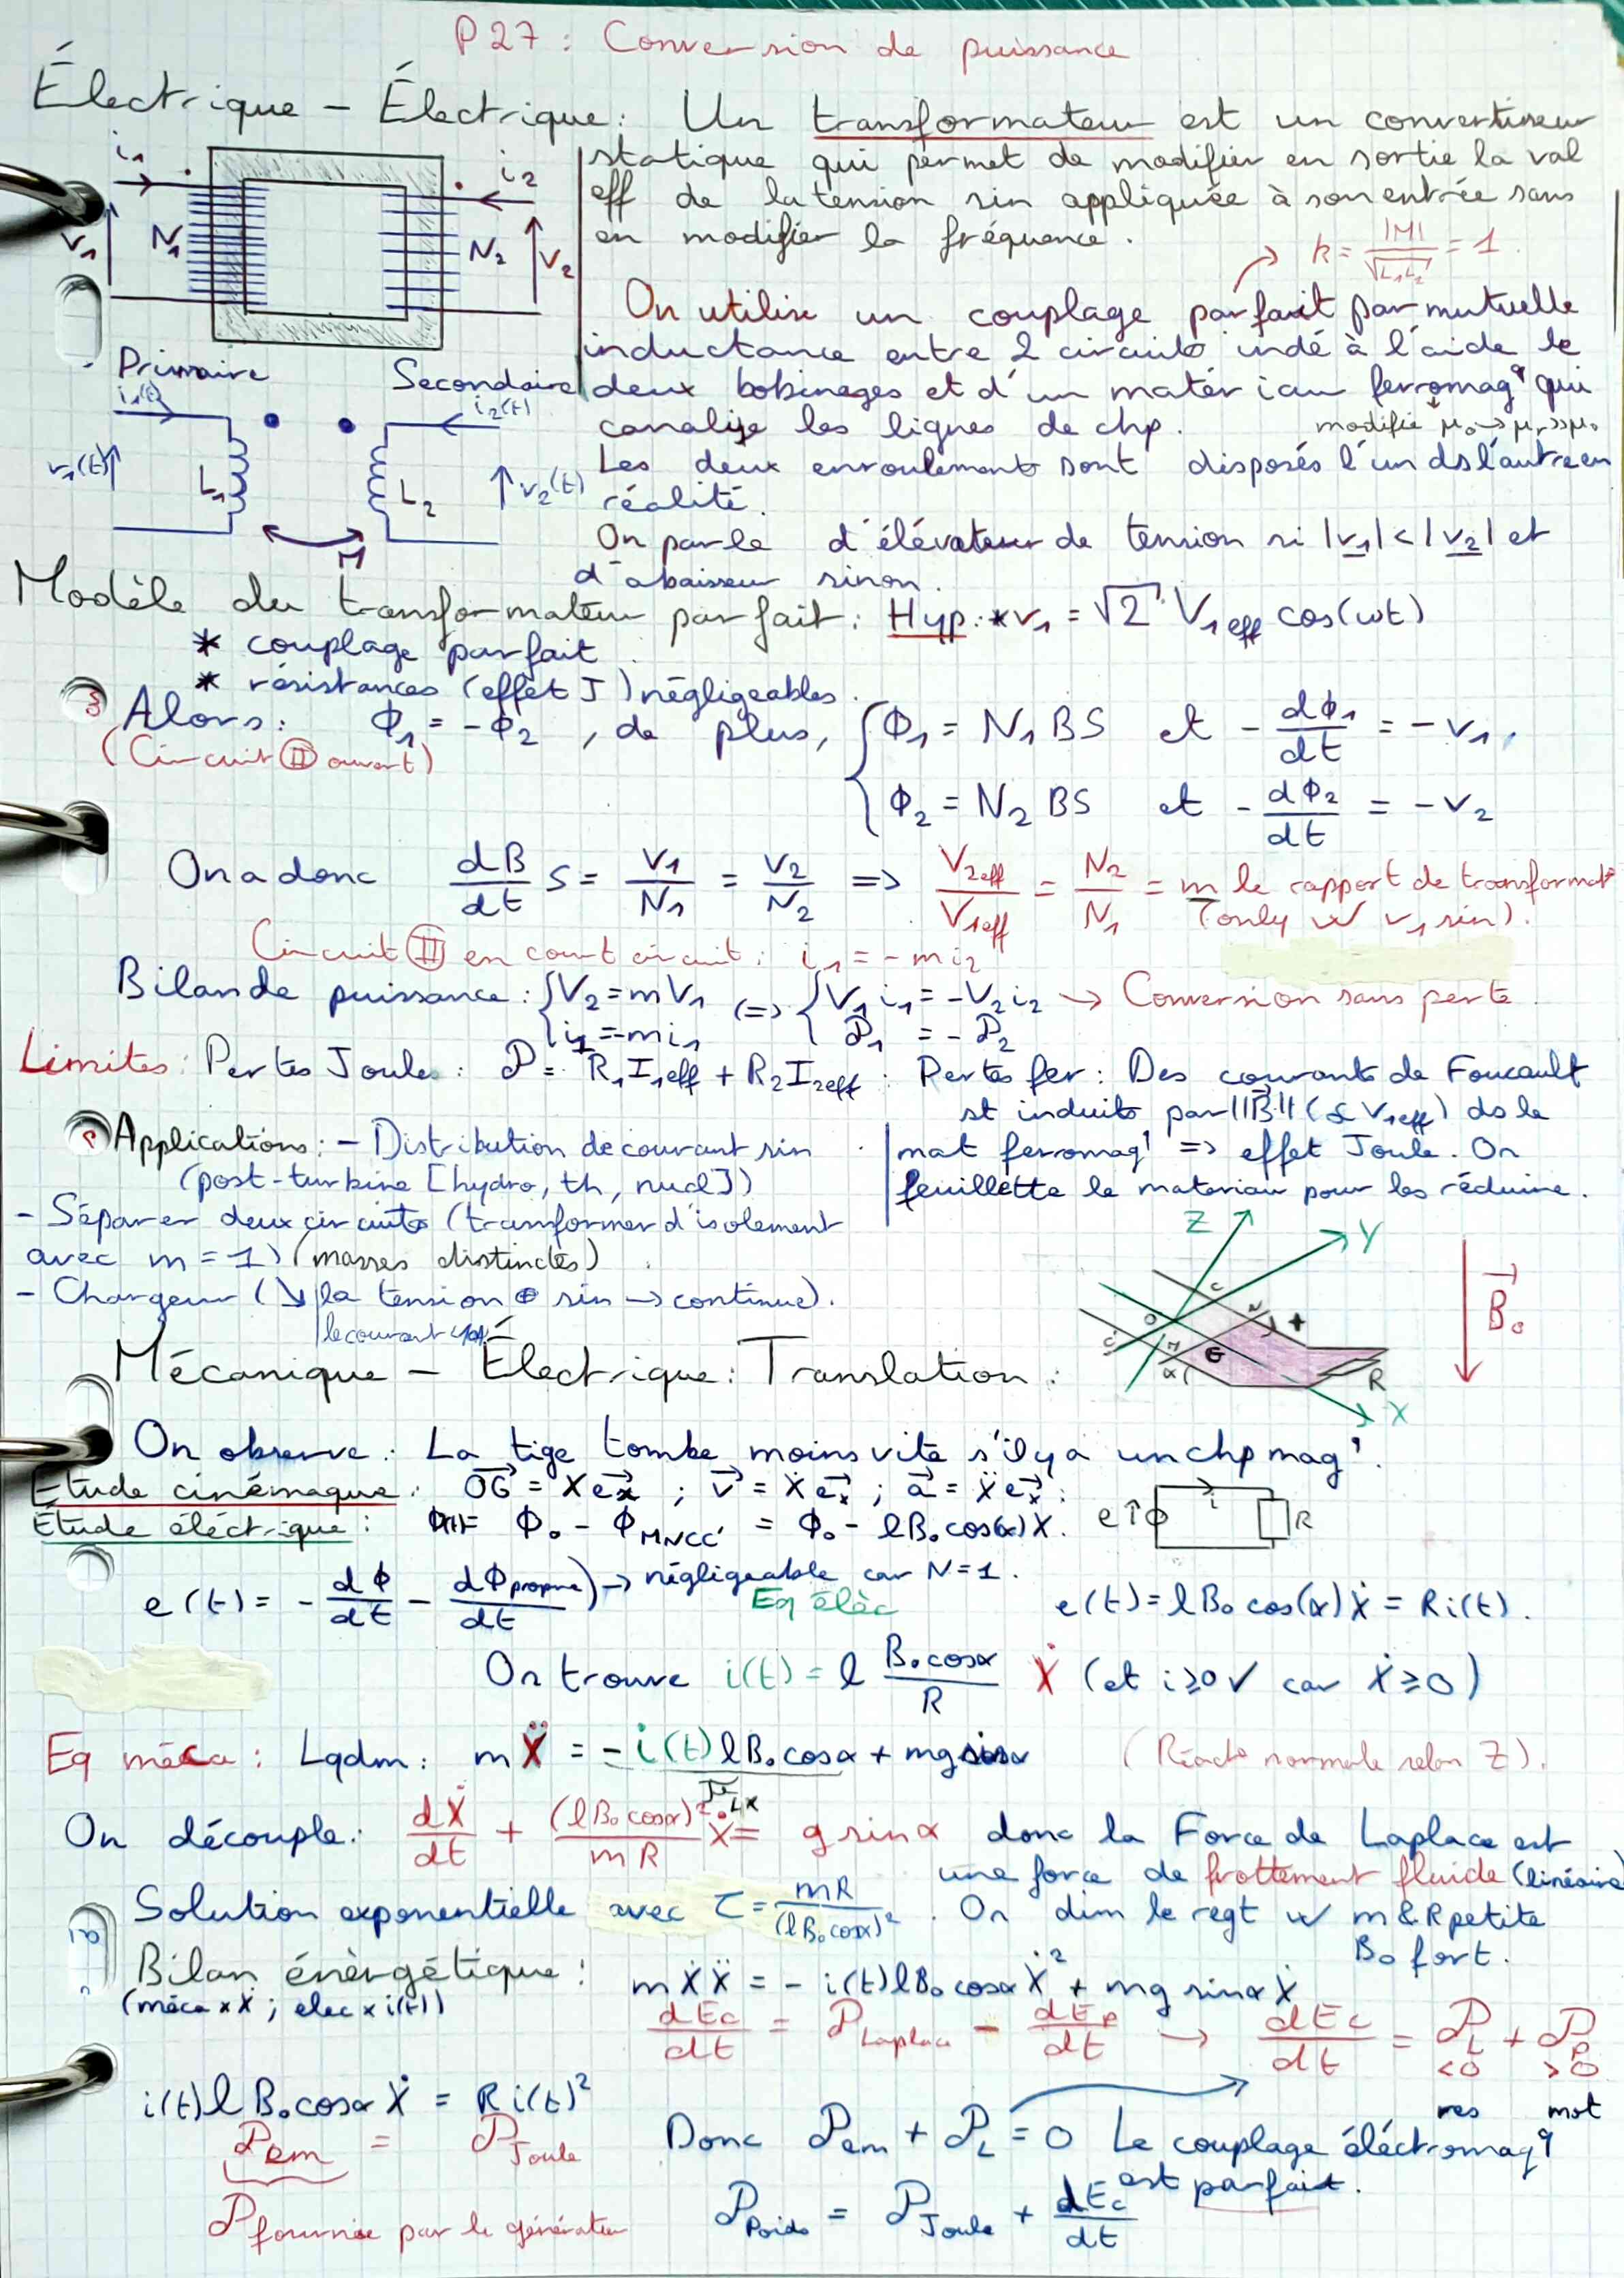 P27 : Conversion de puissance
Électrique - Électrique : Un transformateur est un convertisseur
statique qui permet de modifier en sortie la val
eff de la tension sin appliquée à son entrée sans
en modifier la fréquence.
k = |M| / √(L₁L₂) = 1
i₁ i₂ V₁ N₁ N₂ V₂
On utilise un couplage parfait par mutuelle
inductance entre 2 circuits indé à l'aide de
deux bobinages et d'un matériau ferromag^q qui
canalise les lignes de chp. modifie μ₀ → μr >> μ₀
Primaire Secondaire
i₁(t) i₂(t)
v₁(t) L₁ L₂ v₂(t)
M
Les deux enroulements sont disposés l'un ds l'autre en
réalité.
On parle d'élévateur de tension si |v₁| < |v₂| et
d'abaisseur sinon.
Modèle du transformateur parfait : Hyp : * v₁ = √2 V₁eff cos(ωt)
* couplage parfait
* résistances (effet J) négligeables.
Alors : Φ₁ = -Φ₂ , de plus, { Φ₁ = N₁BS et - dΦ₁/dt = -v₁,
(Circuit II ouvert)
Φ₂ = N₂BS et - dΦ₂/dt = -v₂
On a donc dB/dt S = V₁/N₁ = V₂/N₂ => V₂eff/V₁eff = N₂/N₁ = m le rapport de transformat°
(only w/ v₁ sin).
Circuit II en court circuit : i₁ = -mi₂
Bilan de puissance : { V₂ = mV₁ (=) { V₁i₁ = -V₂i₂ → Conversion sans perte
i₂ = -mi₁ P₁ = -P₂
Limites : Pertes Joules : P = R₁I₁eff + R₂I₂eff : Pertes fer : Des courants de Foucault
st induits par ||B⃗|| (∝ V₁eff) ds le
mat ferromag^q => effet Joule. On
feuillette le materiau pour les réduire.
Applications : - Distribution de courant sin
(post-turbine [hydro, th, nucl])
- Séparer deux circuits (transformer d'isolement
avec m = 1) (masses distinctes)
- Chargeur (↘ la tension ⊕ sin → continue).
le courant
Z Y C N O + C' M G α R X B⃗₀
Mécanique - Électrique : Translation :
On observe : La tige tombe moins vite s'il y a un chp mag^q.
Étude cinémaque : OG⃗ = X e⃗x ; v⃗ = Ẋ e⃗x ; a⃗ = Ẍ e⃗x ;
Étude éléctrique : Φ(t) = Φ₀ - Φ_MNCC' = Φ₀ - lB₀cos(α)X. e i R
e(t) = - dΦ/dt - dΦpropre/dt → négligeable car N=1.
Eq élèc e(t) = lB₀cos(α)Ẋ = Ri(t).
On trouve i(t) = l B₀cosα/R Ẋ (et i≥0 ✓ car Ẋ≥0)
Eq méca : Lqdm : mẌ = -i(t)lB₀cosα + mg sinα (Réact° normale selon Z).
F⃗Lx
On découple : dẊ/dt + (lB₀cosα)²/mR Ẋ = g sinα donc la Force de Laplace est
une force de frottement fluide (linéaire)
Solution exponentielle avec τ = mR/(lB₀cosα)². On dim le regt w/ m & R petite
B₀ fort.
Bilan énèrgétique : mẊẌ = -i(t)lB₀cosα Ẋ² + mg sinα Ẋ
(méca x Ẋ ; elec x i(t))
dEc/dt = P Laplace - dEp/dt → dEc/dt = P_L + P_P
<0 >0
res mot
i(t)lB₀cosα Ẋ = Ri(t)²
Pem = P Joule
Donc Pem + P_L = 0 Le couplage éléctromag^q
est parfait.
P fournie par le générateur
P Poids = P Joule + dEc/dt